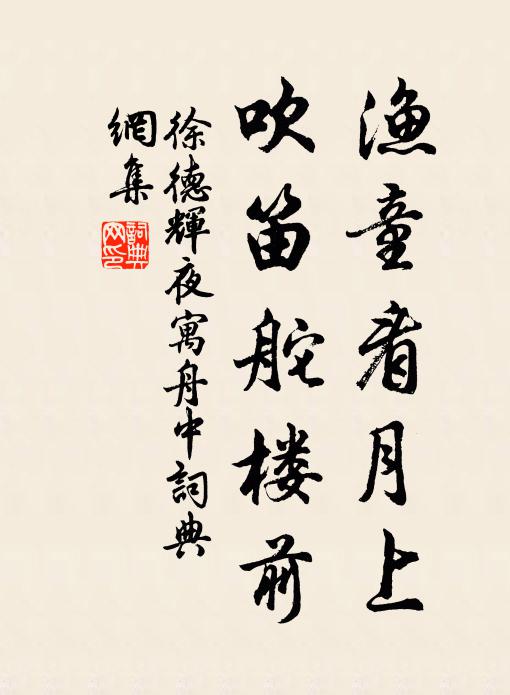 渔童看月上
吹笛舵楼前
徐德輝夜寓舟中詞典
網集
詞典
网印